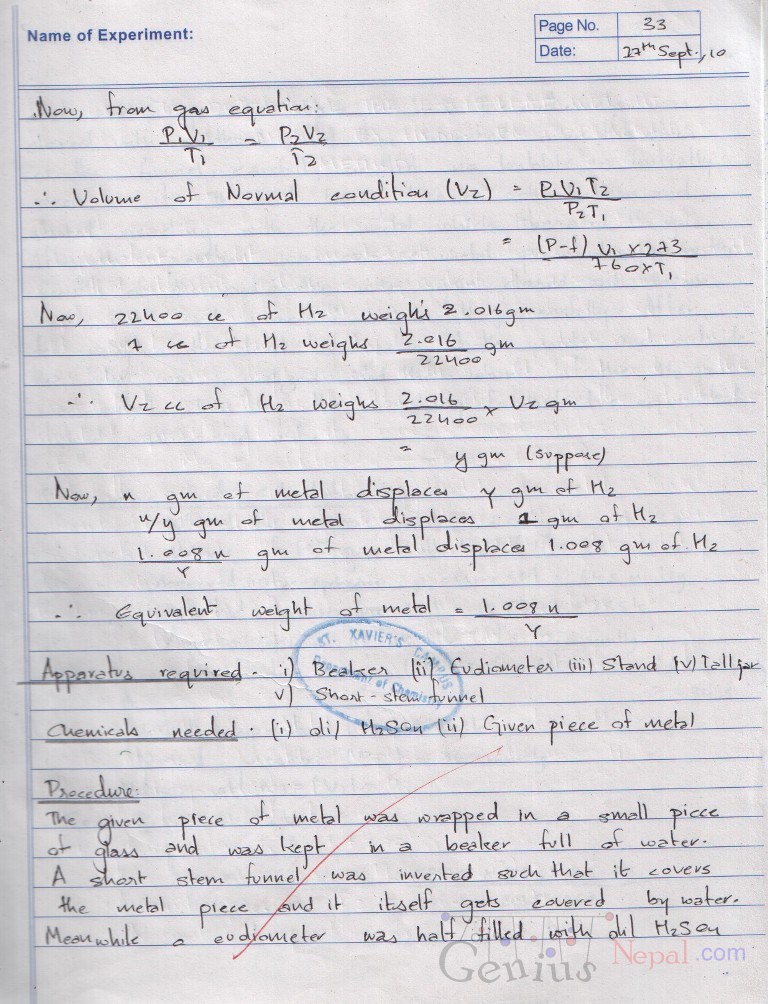 Name of Experiment:
Page No. 33
Date: 27th Sept., 10
Now, from gas equation:
P1V1/T1 = P2V2/T2
∴ Volume of Normal condition (V2) = P1V1T2/P2T1
= (P-f) V1 x 273/760 x T1
Now, 22400 cc of H2 weighs 2.016gm
1 cc of H2 weighs 2.016/22400 gm
∴ V2 cc of H2 weighs 2.016/22400 x V2 gm
= y gm (suppose)
Now, x gm of metal displaces y gm of H2
x/y gm of metal displaces 1 gm of H2
1.008 x/y gm of metal displaces 1.008 gm of H2
∴ Equivalent weight of metal = 1.008 x/y
ST. XAVIER'S CAMPUS
Department of Chemistry
Apparatus required. i) Beaker (ii) Eudiometer (iii) Stand (v) Tall jar
v) Short-stem funnel
Chemicals needed. (i) dil H2SO4 (ii) Given piece of metal
Procedure:
The given piece of metal was wrapped in a small piece
of glass and was kept in a beaker full of water.
A short stem funnel was inverted such that it covers
the metal piece and it itself gets covered by water.
Meanwhile a eudiometer was half filled with dil H2SO4
Genius Nepal.com